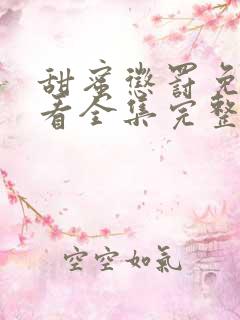 甜蜜懲罰免
看全集完整
空空如氣